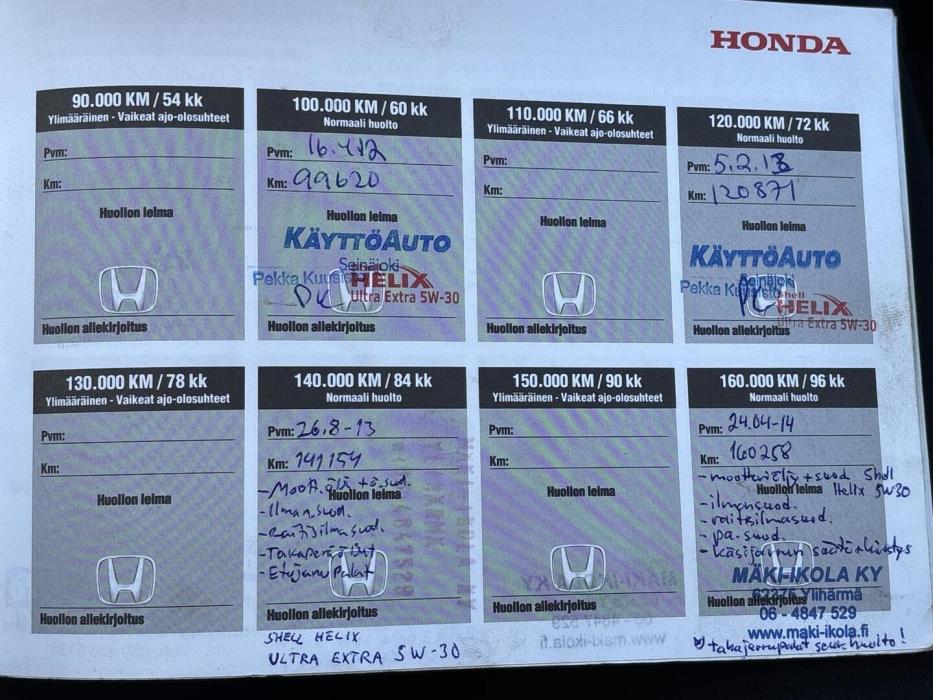 HONDA
90.000 KM / 54 kk
Ylimääräinen - Vaikeat ajo-olosuhteet
Pvm:
Km:
Huollon leima
Huollon allekirjoitus
100.000 KM / 60 kk
Normaali huolto
Pvm: 16.4.12
Km: 99620
Huollon leima
KÄYTTÖAUTO
Seinäjoki
Pekka Kuusisto
HELIX
Ultra Extra 5W-30
Huollon allekirjoitus
110.000 KM / 66 kk
Ylimääräinen - Vaikeat ajo-olosuhteet
Pvm:
Km:
Huollon leima
Huollon allekirjoitus
120.000 KM / 72 kk
Normaali huolto
Pvm: 5.2.13
Km: 120871
Huollon leima
KÄYTTÖAUTO
Seinäjoki
Pekka Kuusisto
Shell
HELIX
Ultra Extra 5W-30
Huollon allekirjoitus
130.000 KM / 78 kk
Ylimääräinen - Vaikeat ajo-olosuhteet
Pvm:
Km:
Huollon leima
Huollon allekirjoitus
140.000 KM / 84 kk
Normaali huolto
Pvm: 26.8-13
Km: 141154
- Moott.öljy + ö.suod.
Huollon leima
- Ilman.suod.
- Raitisilmasuod.
- Takaperä öljyt
- Etujarrupalat
Huollon allekirjoitus
SHELL HELIX
ULTRA EXTRA 5W-30
150.000 KM / 90 kk
Ylimääräinen - Vaikeat ajo-olosuhteet
Pvm:
Km:
Huollon leima
Huollon allekirjoitus
160.000 KM / 96 kk
Normaali huolto
Pvm: 24.04-14
Km: 160258
- moottoriöljy + suod. Shell
Huollon leima
Helix 5W30
- ilmansuod.
- raitisilmasuod.
- pa-suod.
- käsijarrun säätö + kiristys
MÄKI-IKOLA KY
62375 Ylihärmä
Huollon allekirjoitus
06 - 4847 529
www.maki-ikola.fi
takajarrupalat seur. huolto!